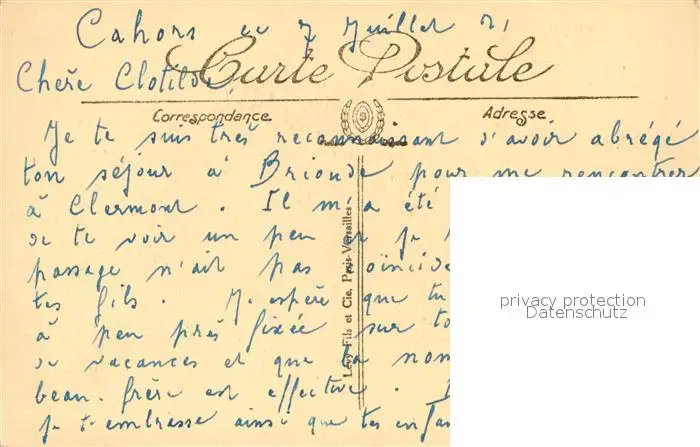 Cahors le 7 Juillet 21
Chère Clotilde,
Carte Postale
Correspondance
Adresse
Je te suis très reconnaissant d'avoir abrégé
ton séjour à Brioude pour me rencontrer
à Clermont. Il m'a été
de te voir un peu et je
passage n'ait pas coïncidé
tes fils. J'espère que tu
à peu près fixée sur
de vacances et que la
beau-frère est effective.
je t'embrasse ainsi que tes
Lévy Fils et Cie, Paris-Versailles
privacy protection
Datenschutz